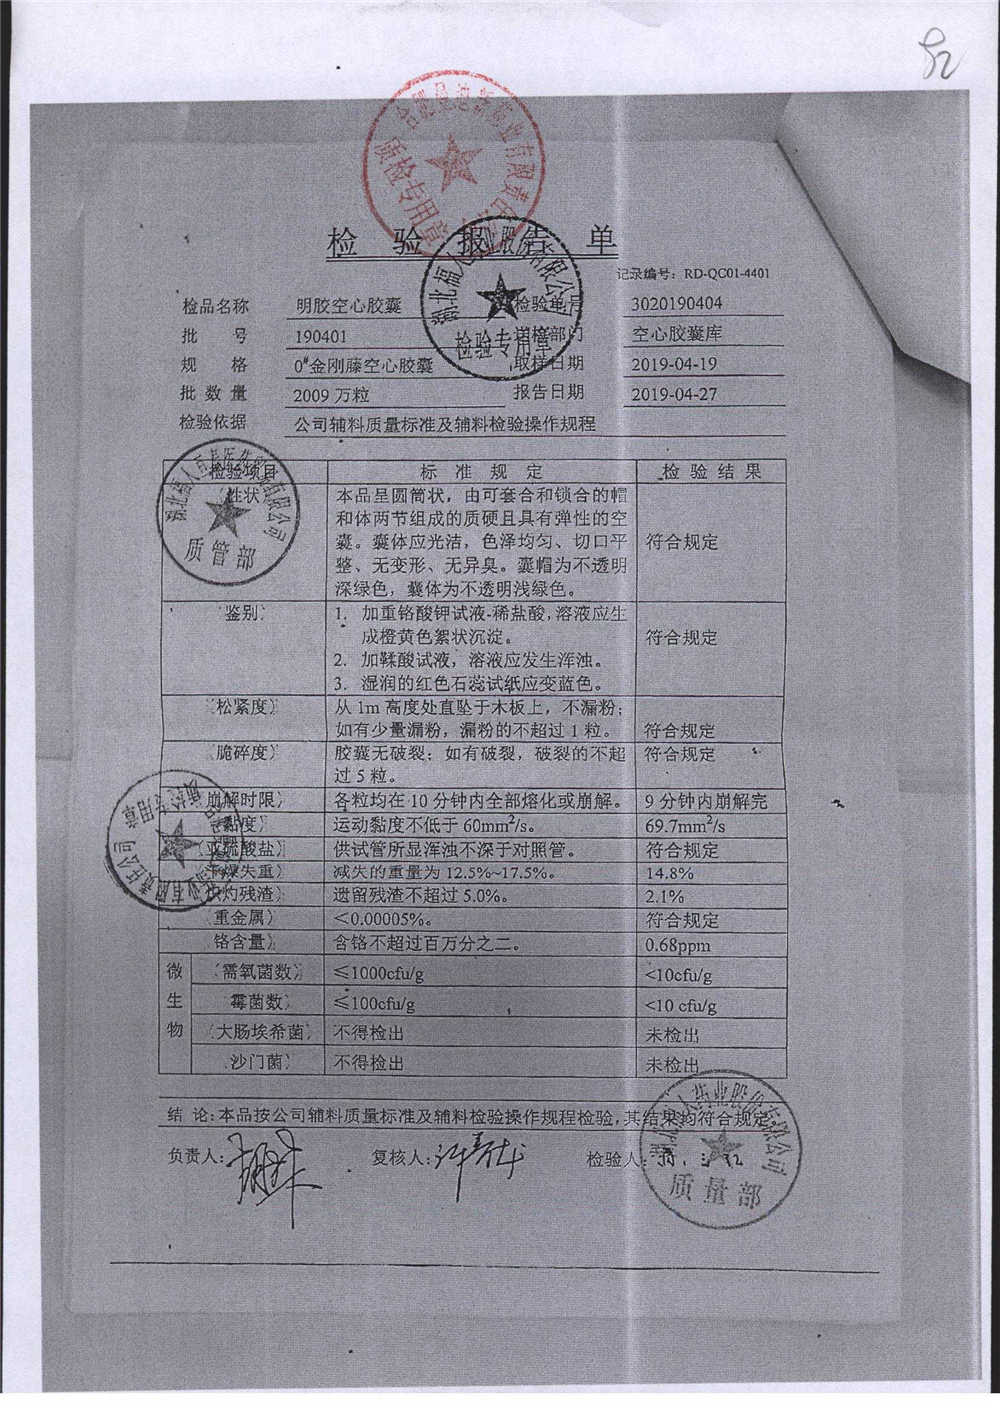 检 验 报 告 单
记录编号：RD-QC01-4401
检品名称 明胶空心胶囊 检验单号 3020190404
批 号 190401 请检部门 空心胶囊库
规 格 0#金刚藤空心胶囊 取样日期 2019-04-19
批 数 量 2009 万粒 报告日期 2019-04-27
检验依据 公司辅料质量标准及辅料检验操作规程
检验项目 标 准 规 定 检 验 结 果
性状 本品呈圆筒状，由可套合和锁合的帽
和体两节组成的质硬且具有弹性的空
囊。囊体应光洁，色泽均匀、切口平 符合规定
整、无变形、无异臭。囊帽为不透明
深绿色，囊体为不透明浅绿色。
〔鉴别〕 1. 加重铬酸钾试液-稀盐酸,溶液应生
成橙黄色絮状沉淀。 符合规定
2. 加鞣酸试液，溶液应发生浑浊。
3. 湿润的红色石蕊试纸应变蓝色。
〔松紧度〕 从 1m 高度处直坠于木板上，不漏粉；
如有少量漏粉，漏粉的不超过 1 粒。 符合规定
〔脆碎度〕 胶囊无破裂；如有破裂，破裂的不超 符合规定
过 5 粒。
〔崩解时限〕 各粒均在 10 分钟内全部熔化或崩解。 9 分钟内崩解完
〔黏度〕 运动黏度不低于 60mm²/s。 69.7mm²/s
〔亚硫酸盐〕 供试管所显浑浊不深于对照管。 符合规定
〔干燥失重〕 减失的重量为 12.5%~17.5%。 14.8%
〔炽灼残渣〕 遗留残渣不超过 5.0%。 2.1%
〔重金属〕 ＜0.00005%。 符合规定
〔铬含量〕 含铬不超过百万分之二。 0.68ppm
微生物 〔需氧菌数〕 ≤1000cfu/g <10cfu/g
〔霉菌数〕 ≤100cfu/g <10 cfu/g
〔大肠埃希菌〕 不得检出 未检出
〔沙门菌〕 不得检出 未检出
结 论:本品按公司辅料质量标准及辅料检验操作规程检验,其结果均符合规定。
负责人: 复核人: 检验人:
质检专用章
检验专用章
质管部
质检专用章
质量部